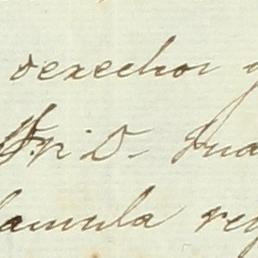 derechos y
Sr. D. Jua
lamula reg